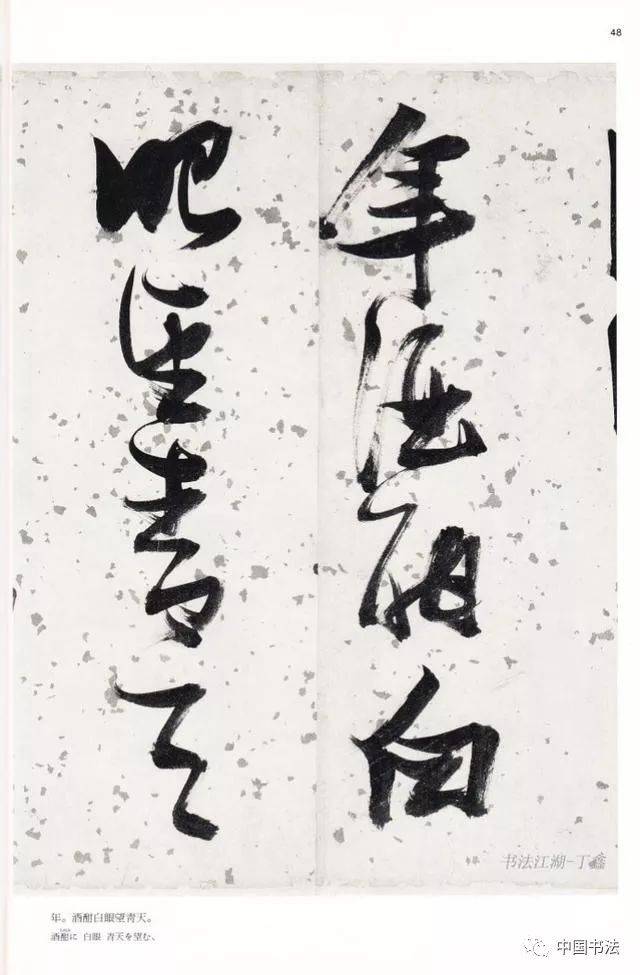 48
年酒酣白
眼望青天
书法江湖-丁鑫
年。酒酣白眼望青天。
酒酣に 白眼 青天を望む、
中国书法